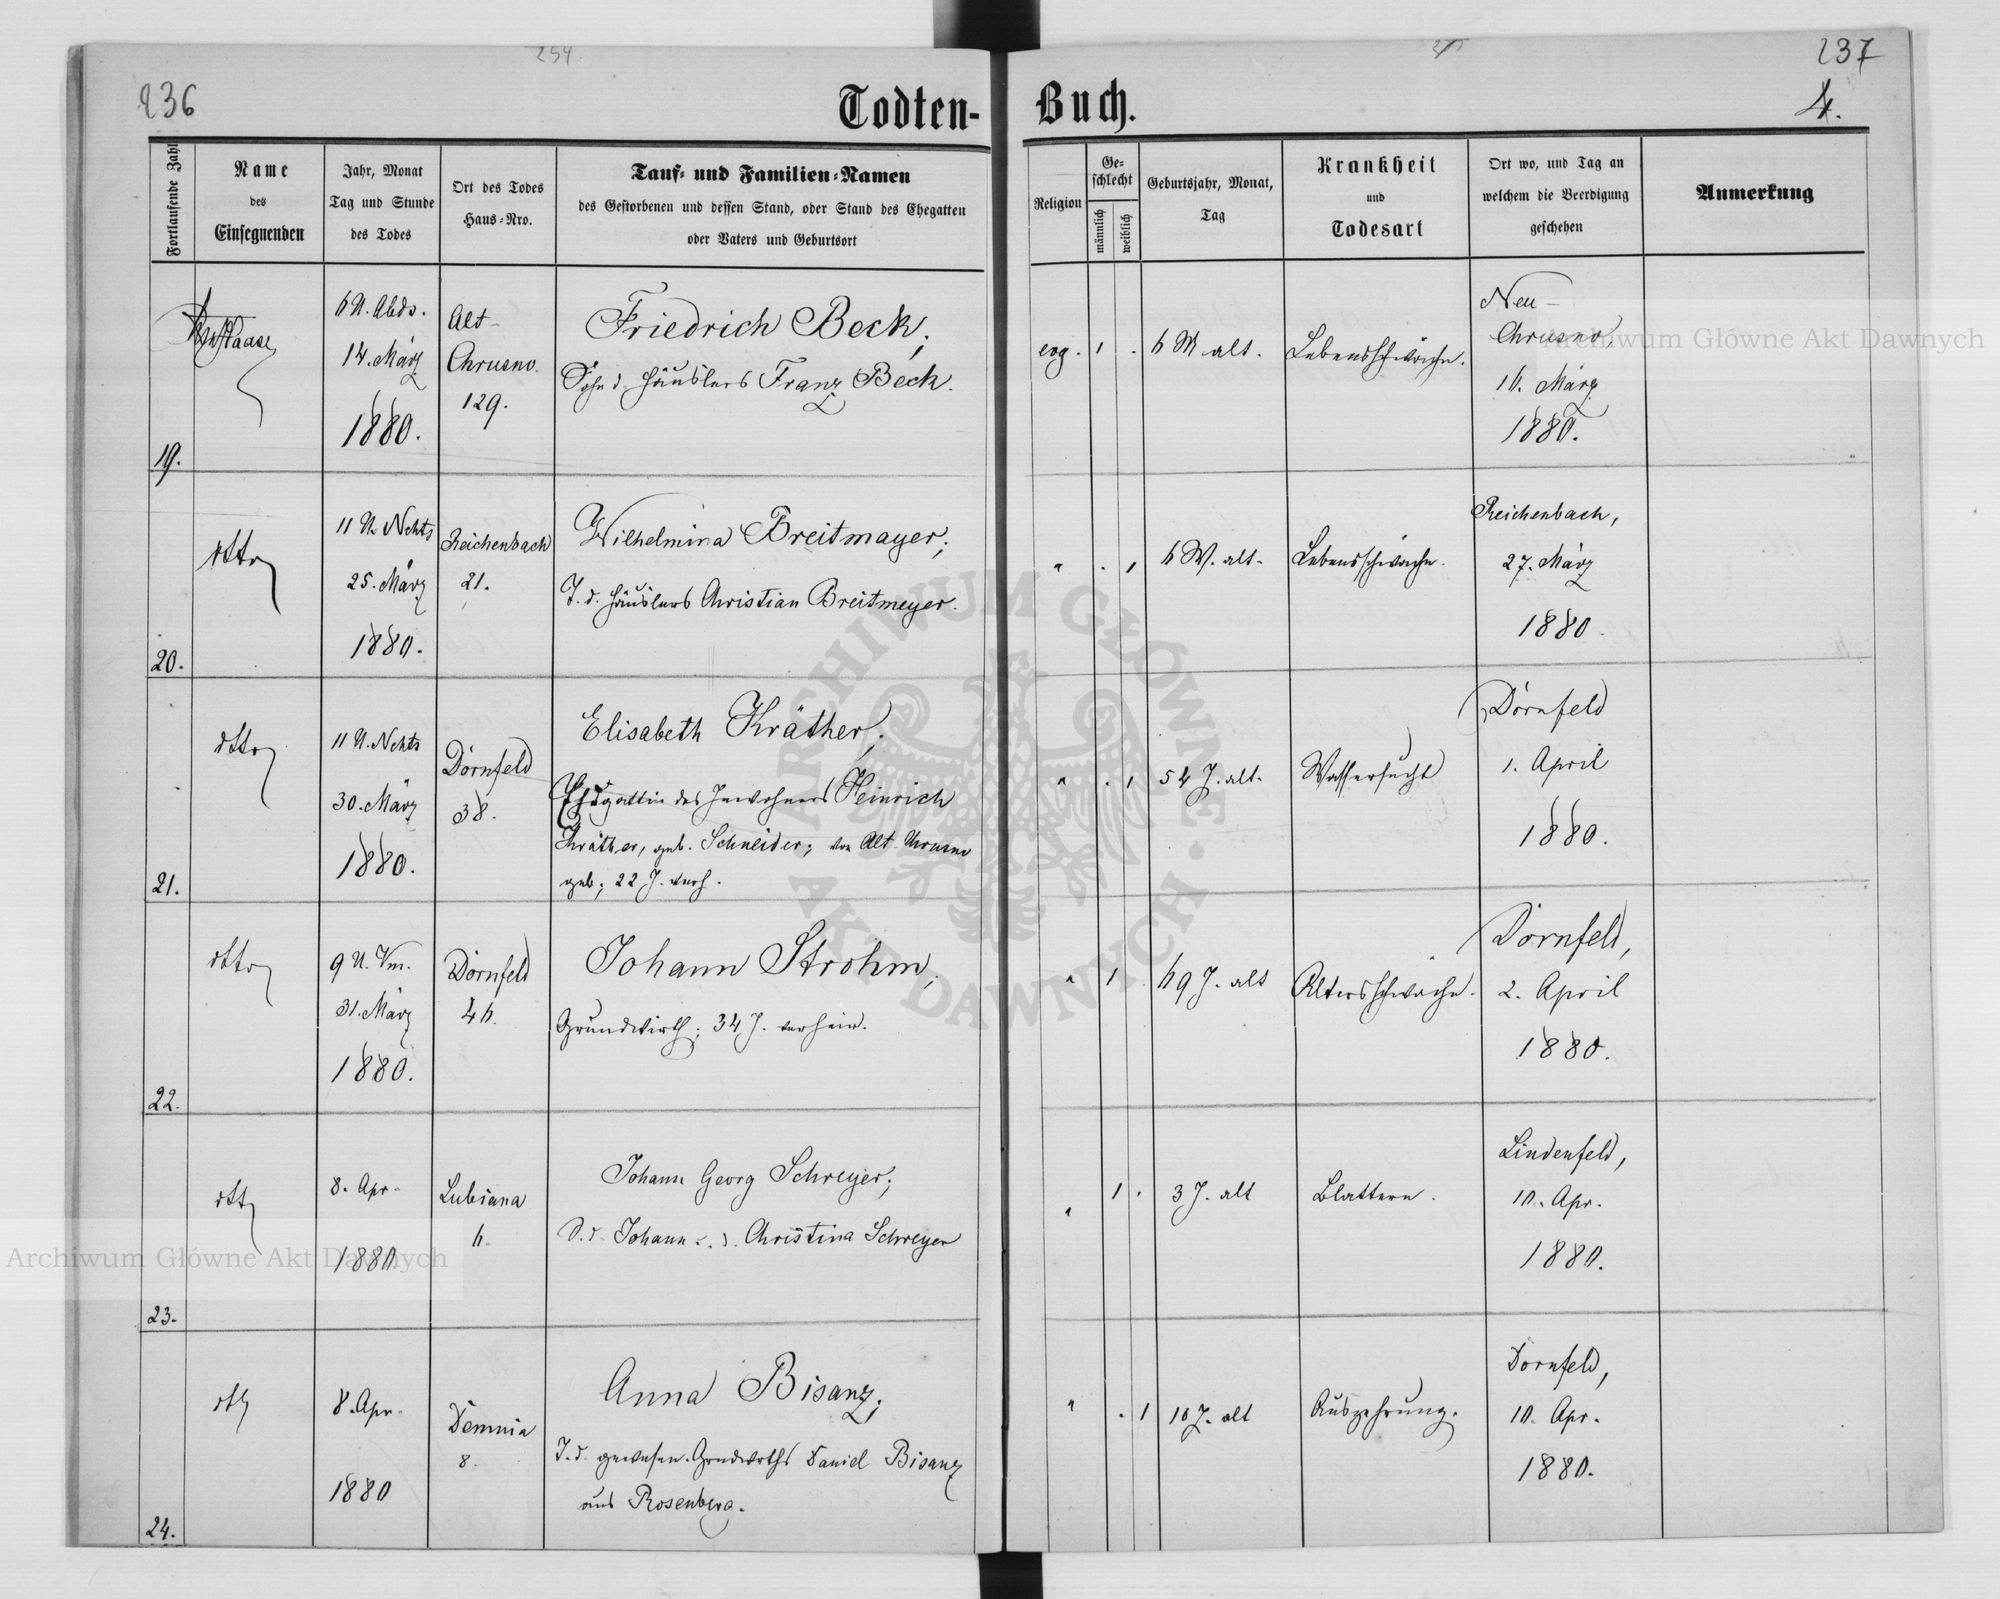 254
236
237
4.
Todten-Buch.
Fortlaufende Zahl
Name
des
Einsegnenden
Jahr, Monat
Tag und Stunde
des Todes
Ort des Todes
Haus-Nro.
Tauf- und Familien-Namen
des Gestorbenen und dessen Stand, oder Stand des Ehegatten
oder Vaters und Geburtsort
Religion
Ge-
schlecht
männlich
weiblich
Geburtsjahr, Monat,
Tag
Krankheit
und
Todesart
Ort wo, und Tag an
welchem die Beerdigung
geschehen
Anmerkung
19.
6 U. Abds.
14. März
1880.
Alt-
Chrusno.
129.
Friedrich Beck,
Sohn d. Häuslers Franz Beck.
evg.
1
.
6 W alt.
Lebensschwäche.
Neu-
Chrusno,
16. März
1880.
20.
dtto
11 U. Nchts
25. März
1880.
Reichenbach
21.
Wilhelmina Breitmayer;
T. d. Häuslers Christian Breitmeyer.
"
.
1
6 W. alt.
Lebensschwäche.
Reichenbach,
27. März
1880.
21.
dtto
11 U. Nchts
30. März
1880.
Dörnfeld
38.
Elisabeth Kräther,
Ehegattin des Inwohners Heinrich
Kräther, geb. Schneider; von Alt Chrusno
geb; 22 J. verh.
"
.
1
54 J. alt.
Wassersucht
Dörnfeld
1. April
1880.
22.
dtto
9 U. Vm.
31. März
1880.
Dörnfeld
46.
Johann Strohm,
Grundwirth; 34 J. verheir.
"
1
69 J. alt
Altersschwäche.
Dornfeld,
2. April
1880.
23.
dtto
8. Apr.
1880
Lubiana
6.
Johann Georg Schreyer;
S. d. Johann u. d. Christina Schreyer
"
1
.
3 J. alt
Blattern.
Lindenfeld,
10. Apr.
1880.
24.
dtto
8. Apr.
1880
Demnia
8.
Anna Bisanz;
T. d. gewesen. Grndwirths Daniel Bisanz
aus Rosenberg.
"
.
1
10 J. alt
Auszehrung.
Dornfeld,
10. Apr.
1880.
ARCHIWUM GŁÓWNE AKT DAWNYCH
Archiwum Główne Akt Dawnych
Archiwum Główne Akt Dawnych